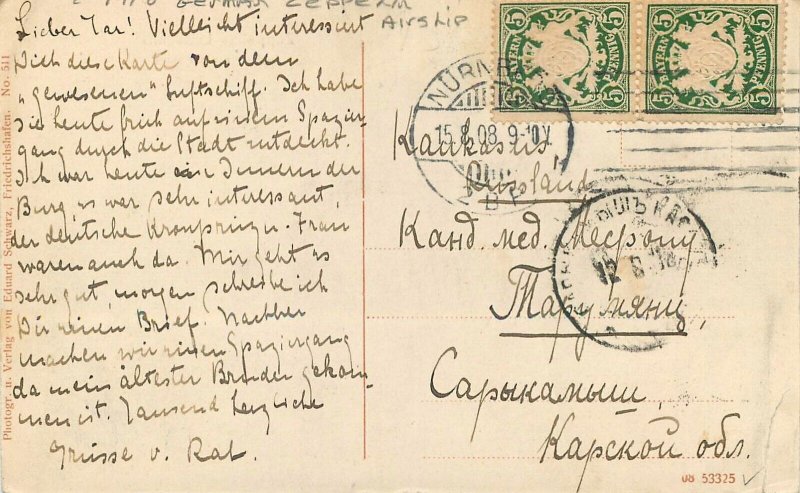 1910 GERMAN ZEPPELIN
AIRSHIP
Lieber Tar! Vielleicht interessirt
Dich diese Karte von dem
„gewesenen" Luftschiff. Ich habe
sie heute früh auf einem Spazier-
gang durch die Stadt entdeckt.
Ich war heute im Innern der
Burg, es war sehr interessant,
der deutsche Kronprinz u. Frau
waren auch da. Mir geht es
sehr gut, morgen schreibe ich
Dir einen Brief. Nachher
machen wir einen Spaziergang
da mein ältester Bruder gekom-
men ist. Tausend herzliche
Grüsse v. Rat.
Photogr. u. Verlag von Eduard Schwarz, Friedrichshafen. No. 511
5 BAYERN 5 PFENNIG
5 BAYERN 5 PFENNIG
NÜRNBERG
15.8.08 9-10V
2 B.P.
Kaukasus
Russland
Канд. мед. Месропу
Тарумянц,
Сарыкамыш,
Карской обл.
08 53325